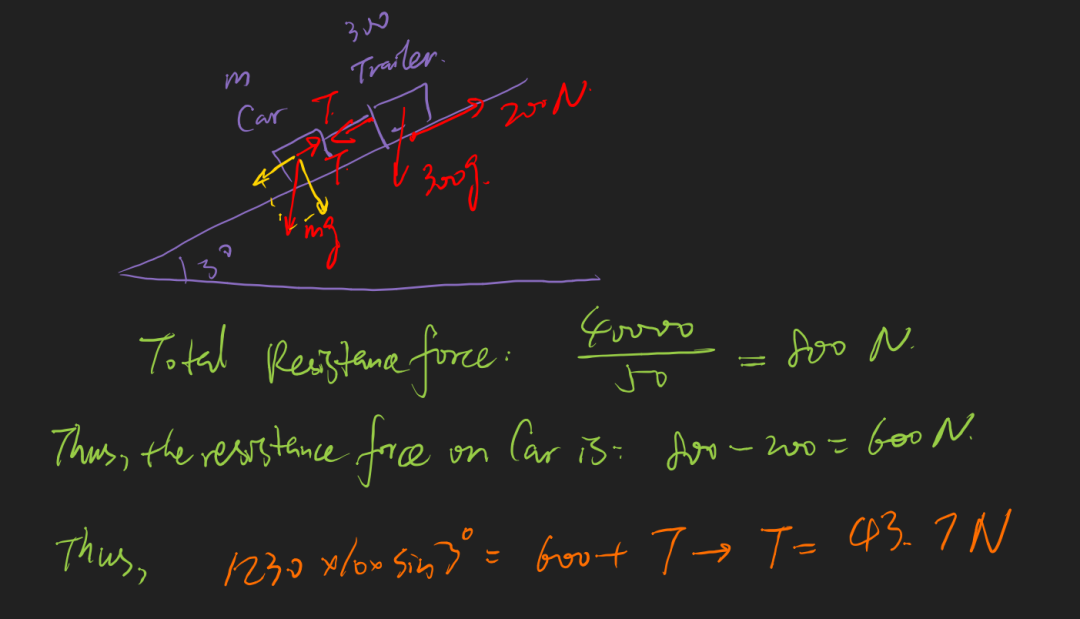 300
Trailer.
m
Car
T
200N.
T
300g.
mg
3°
Total Resistance force: 40000/50 = 800 N.
Thus, the resistance force on Car is: 800 - 200 = 600 N.
Thus, 1230 × 10 × sin3° = 600 + T → T = 43.7N